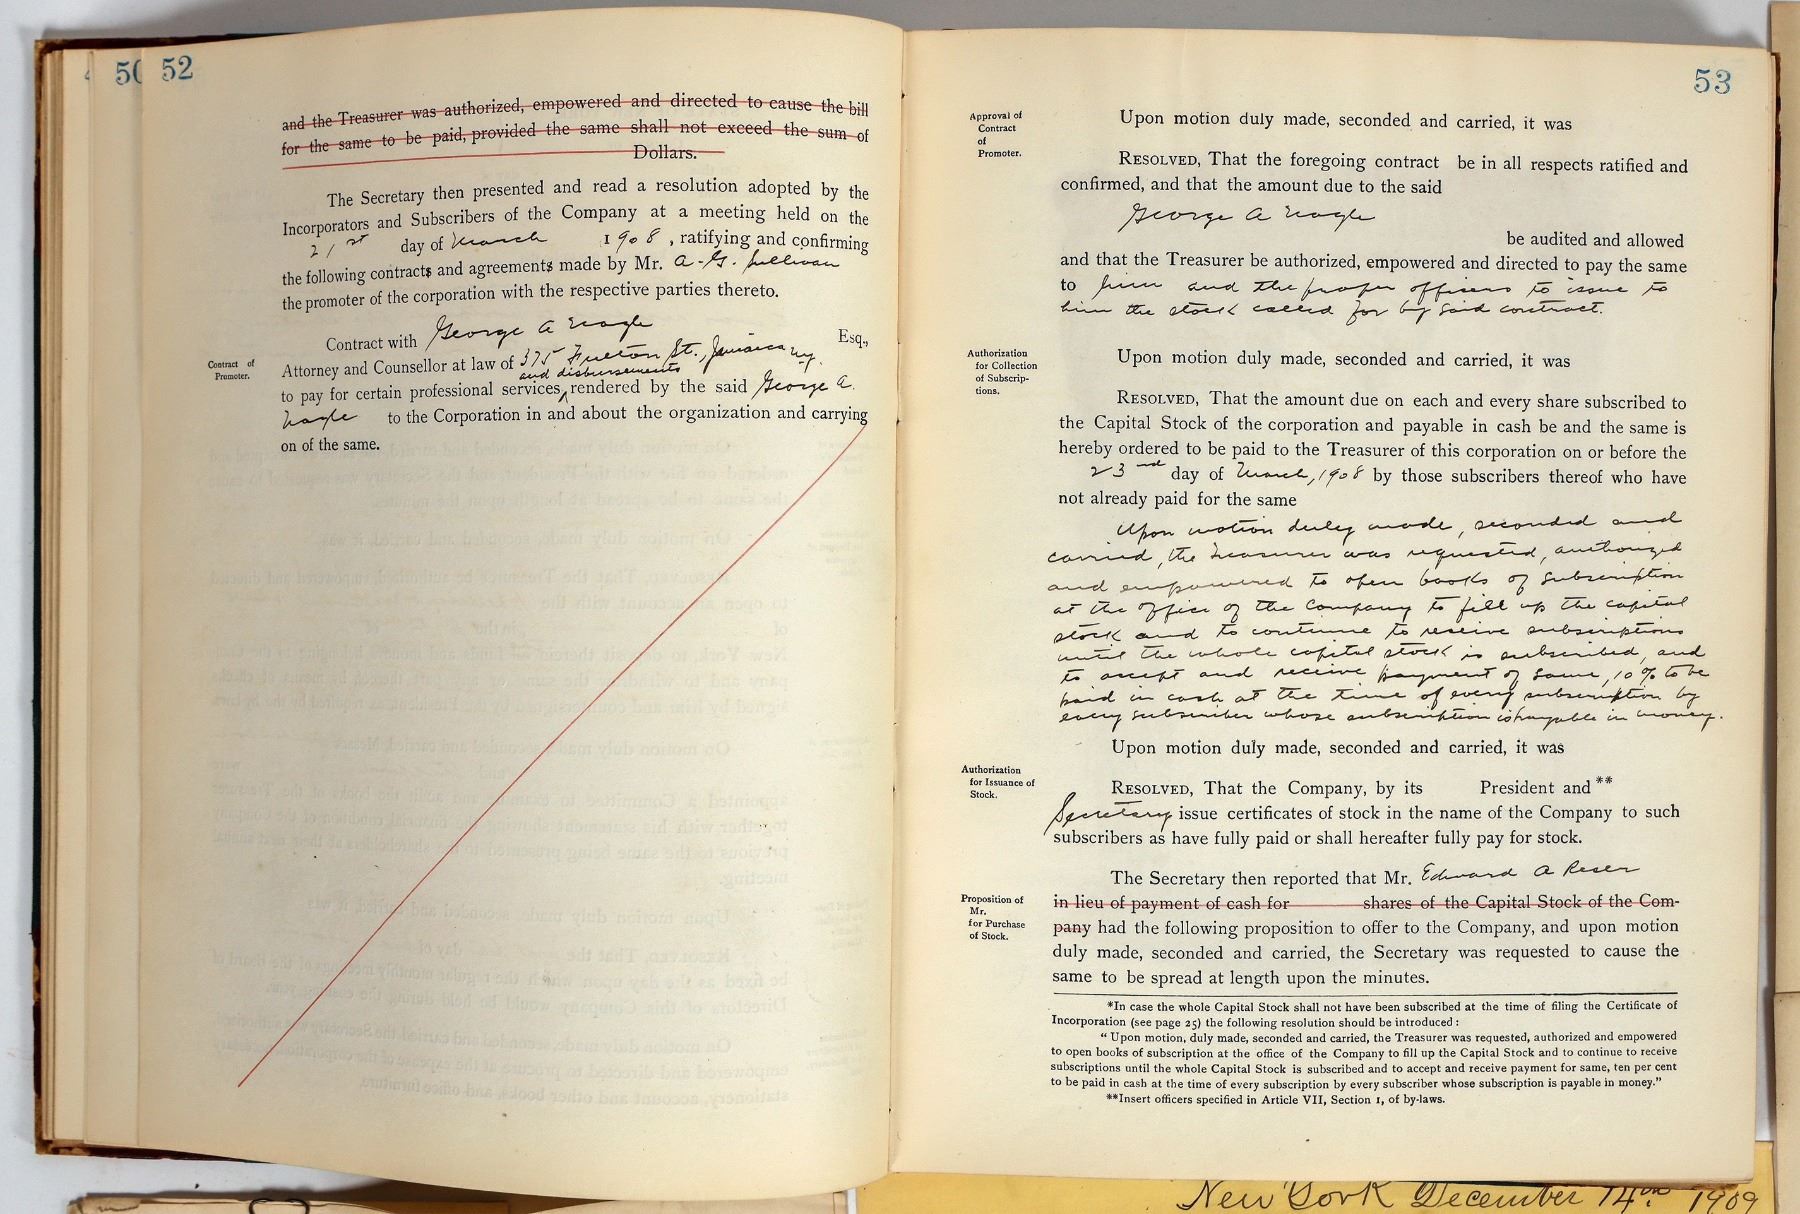 50 52
and the Treasurer was authorized, empowered and directed to cause the bill
for the same to be paid, provided the same shall not exceed the sum of
Dollars.
The Secretary then presented and read a resolution adopted by the
Incorporators and Subscribers of the Company at a meeting held on the
21st day of March 1908, ratifying and confirming
the following contracts and agreements made by Mr. A. G. Sullivan
the promoter of the corporation with the respective parties thereto.
Contract with George A Nagle Esq.,
Contract of
Promoter.
Attorney and Counsellor at law of 375 Fulton St., Jamaica NY.
and disbursements
to pay for certain professional services, rendered by the said George A.
Nagle to the Corporation in and about the organization and carrying
on of the same.
53
Approval of
Contract
of
Promoter.
Upon motion duly made, seconded and carried, it was
RESOLVED, That the foregoing contract be in all respects ratified and
confirmed, and that the amount due to the said
George A Nagle
be audited and allowed
and that the Treasurer be authorized, empowered and directed to pay the same
to him and the proper officers to issue to
him the stock called for by said contract.
Authorization
for Collection
of Subscrip-
tions.
Upon motion duly made, seconded and carried, it was
RESOLVED, That the amount due on each and every share subscribed to
the Capital Stock of the corporation and payable in cash be and the same is
hereby ordered to be paid to the Treasurer of this corporation on or before the
23rd day of March, 1908 by those subscribers thereof who have
not already paid for the same
Upon motion duly made, seconded and
carried, the Treasurer was requested, authorized
and empowered to open books of subscription
at the office of the Company to fill up the capital
stock and to continue to receive subscriptions
until the whole capital stock is subscribed, and
to accept and receive payment of same, 10% to be
paid in cash at the time of every subscription by
every subscriber whose subscription is payable in money.
Upon motion duly made, seconded and carried, it was
Authorization
for Issuance of
Stock.
RESOLVED, That the Company, by its President and **
Secretary issue certificates of stock in the name of the Company to such
subscribers as have fully paid or shall hereafter fully pay for stock.
The Secretary then reported that Mr. Edward A Reser
Proposition of
Mr.
for Purchase
of Stock.
in lieu of payment of cash for shares of the Capital Stock of the Com-
pany had the following proposition to offer to the Company, and upon motion
duly made, seconded and carried, the Secretary was requested to cause the
same to be spread at length upon the minutes.
*In case the whole Capital Stock shall not have been subscribed at the time of filing the Certificate of
Incorporation (see page 25) the following resolution should be introduced:
"Upon motion, duly made, seconded and carried, the Treasurer was requested, authorized and empowered
to open books of subscription at the office of the Company to fill up the Capital Stock and to continue to receive
subscriptions until the whole Capital Stock is subscribed and to accept and receive payment for same, ten per cent
to be paid in cash at the time of every subscription by every subscriber whose subscription is payable in money."
**Insert officers specified in Article VII, Section 1, of by-laws.
New York December 14th 1909